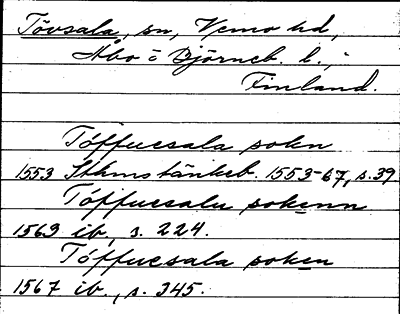 Tövsala, sn, Vemo hd,
Åbo o Björneb. l.,
Finland.
Töffuesala sokn
1553 Sthms tänkeb. 1553-67, s. 39
Töffuesalu sokenn
1563 ib., s. 224.
Töffuesala soken
1567 ib., s. 345.